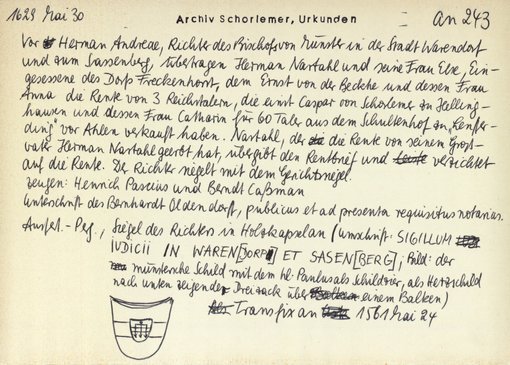 1629 Mai 30
Archiv Schorlemer, Urkunden
an 243
Vor Herman Andreae, Richter des Bischofs von Münster in der Stadt Warendorf
und zum Sassenberg, übertragen Herman Nartahl und seine Frau Else, Ein-
gesessene des Dorfs Freckenhorst, dem Ernst von der Becke und dessen Frau
Anna die Rente von 3 Reichstalern, die einst Caspar von Schorlemer zu Helling-
hausen und dessen Frau Catharin für 60 Taler aus dem Schultenhof zu
vor Ahlen verkauft haben. Nartahl, der die Rente von seinem Groß-
vater Herman Nartahl geerbt hat, übergibt den Rentbrief und verzichtet
auf die Rente. Der Richter siegelt mit dem Gerichtssegel.
Zeugen: Henrich Pascius und Berndt Caßman
Unterschrift des Bernhardt Oldendorff, publicus et ad presenta requisitus notarius.
Ausf.-Perg., Siegel des Richters in Holzkapsel an (Umschrift: SIGILLUM
IUDICII IN WAREN[DORP] ET SASEN[BERG]; Bild: der
münstersche Schild mit dem hl. Paulus als Schildzier, als Herzschild
nach unten zeigender Dreizack über einem Balken)
Transfix an 1561 Mai 24